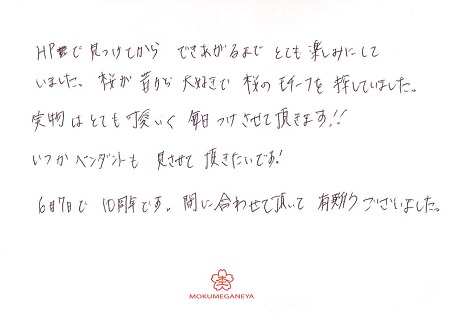 HPで見つけてから できあがるまで とても楽しみにして
いました。桜が昔から大好きで 桜のモチーフを探していました。
実物はとても可愛いく 毎日つけさせて頂きます!!
いつかペンダントも 見させて頂きたいです!
6月7日で 10周年です。間に合わせて頂いて 有難うございました。
MOKUMEGANEYA